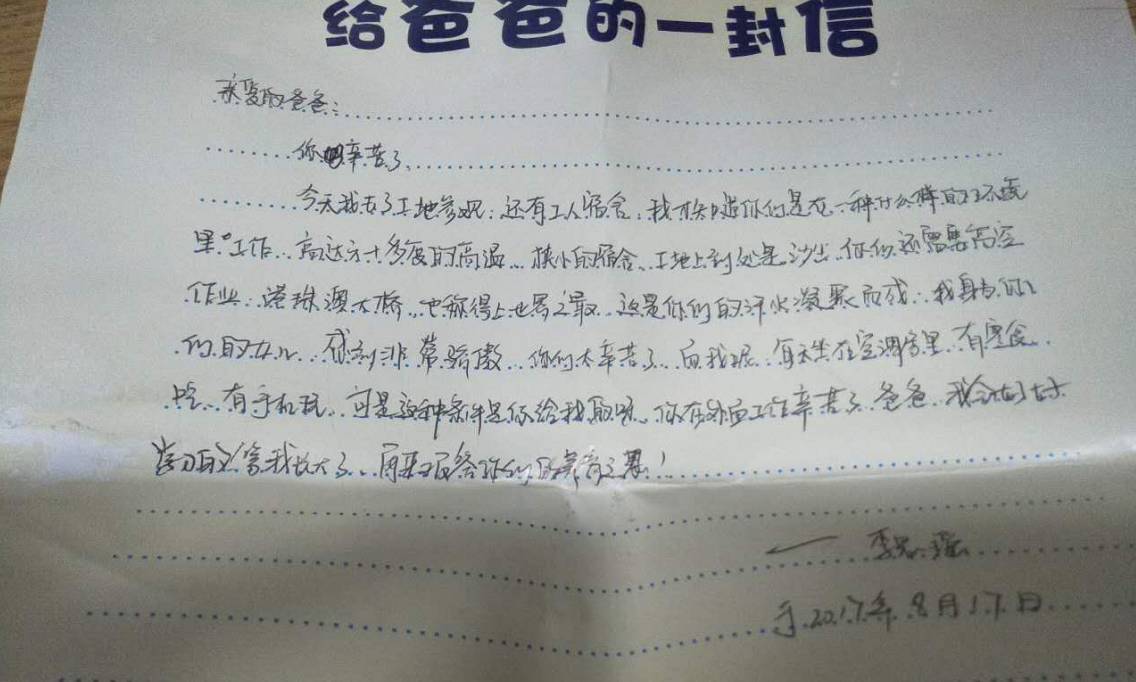 给爸爸的一封信
亲爱的爸爸：
你辛苦了，
今天我去了工地参观，还有工人宿舍，我才知道你们是在一种什么样的环境
里工作，高达六十多度的高温，狭小的宿舍，工地上到处是沙尘，你们还需要高空
作业，港珠澳大桥，也称得上世界之最，这是你们的汗水凝聚而成，我身为你
们的女儿，感到非常骄傲，你们太辛苦了，而我呢，每天坐在空调房里，有零食
吃，有手机玩，可是这种条件是你给我取的，你在外面工作辛苦了，爸爸，我会好好
学习的，等我长大了，再来报答你们的养育之恩！
——李思瑶
于2017年8月17日